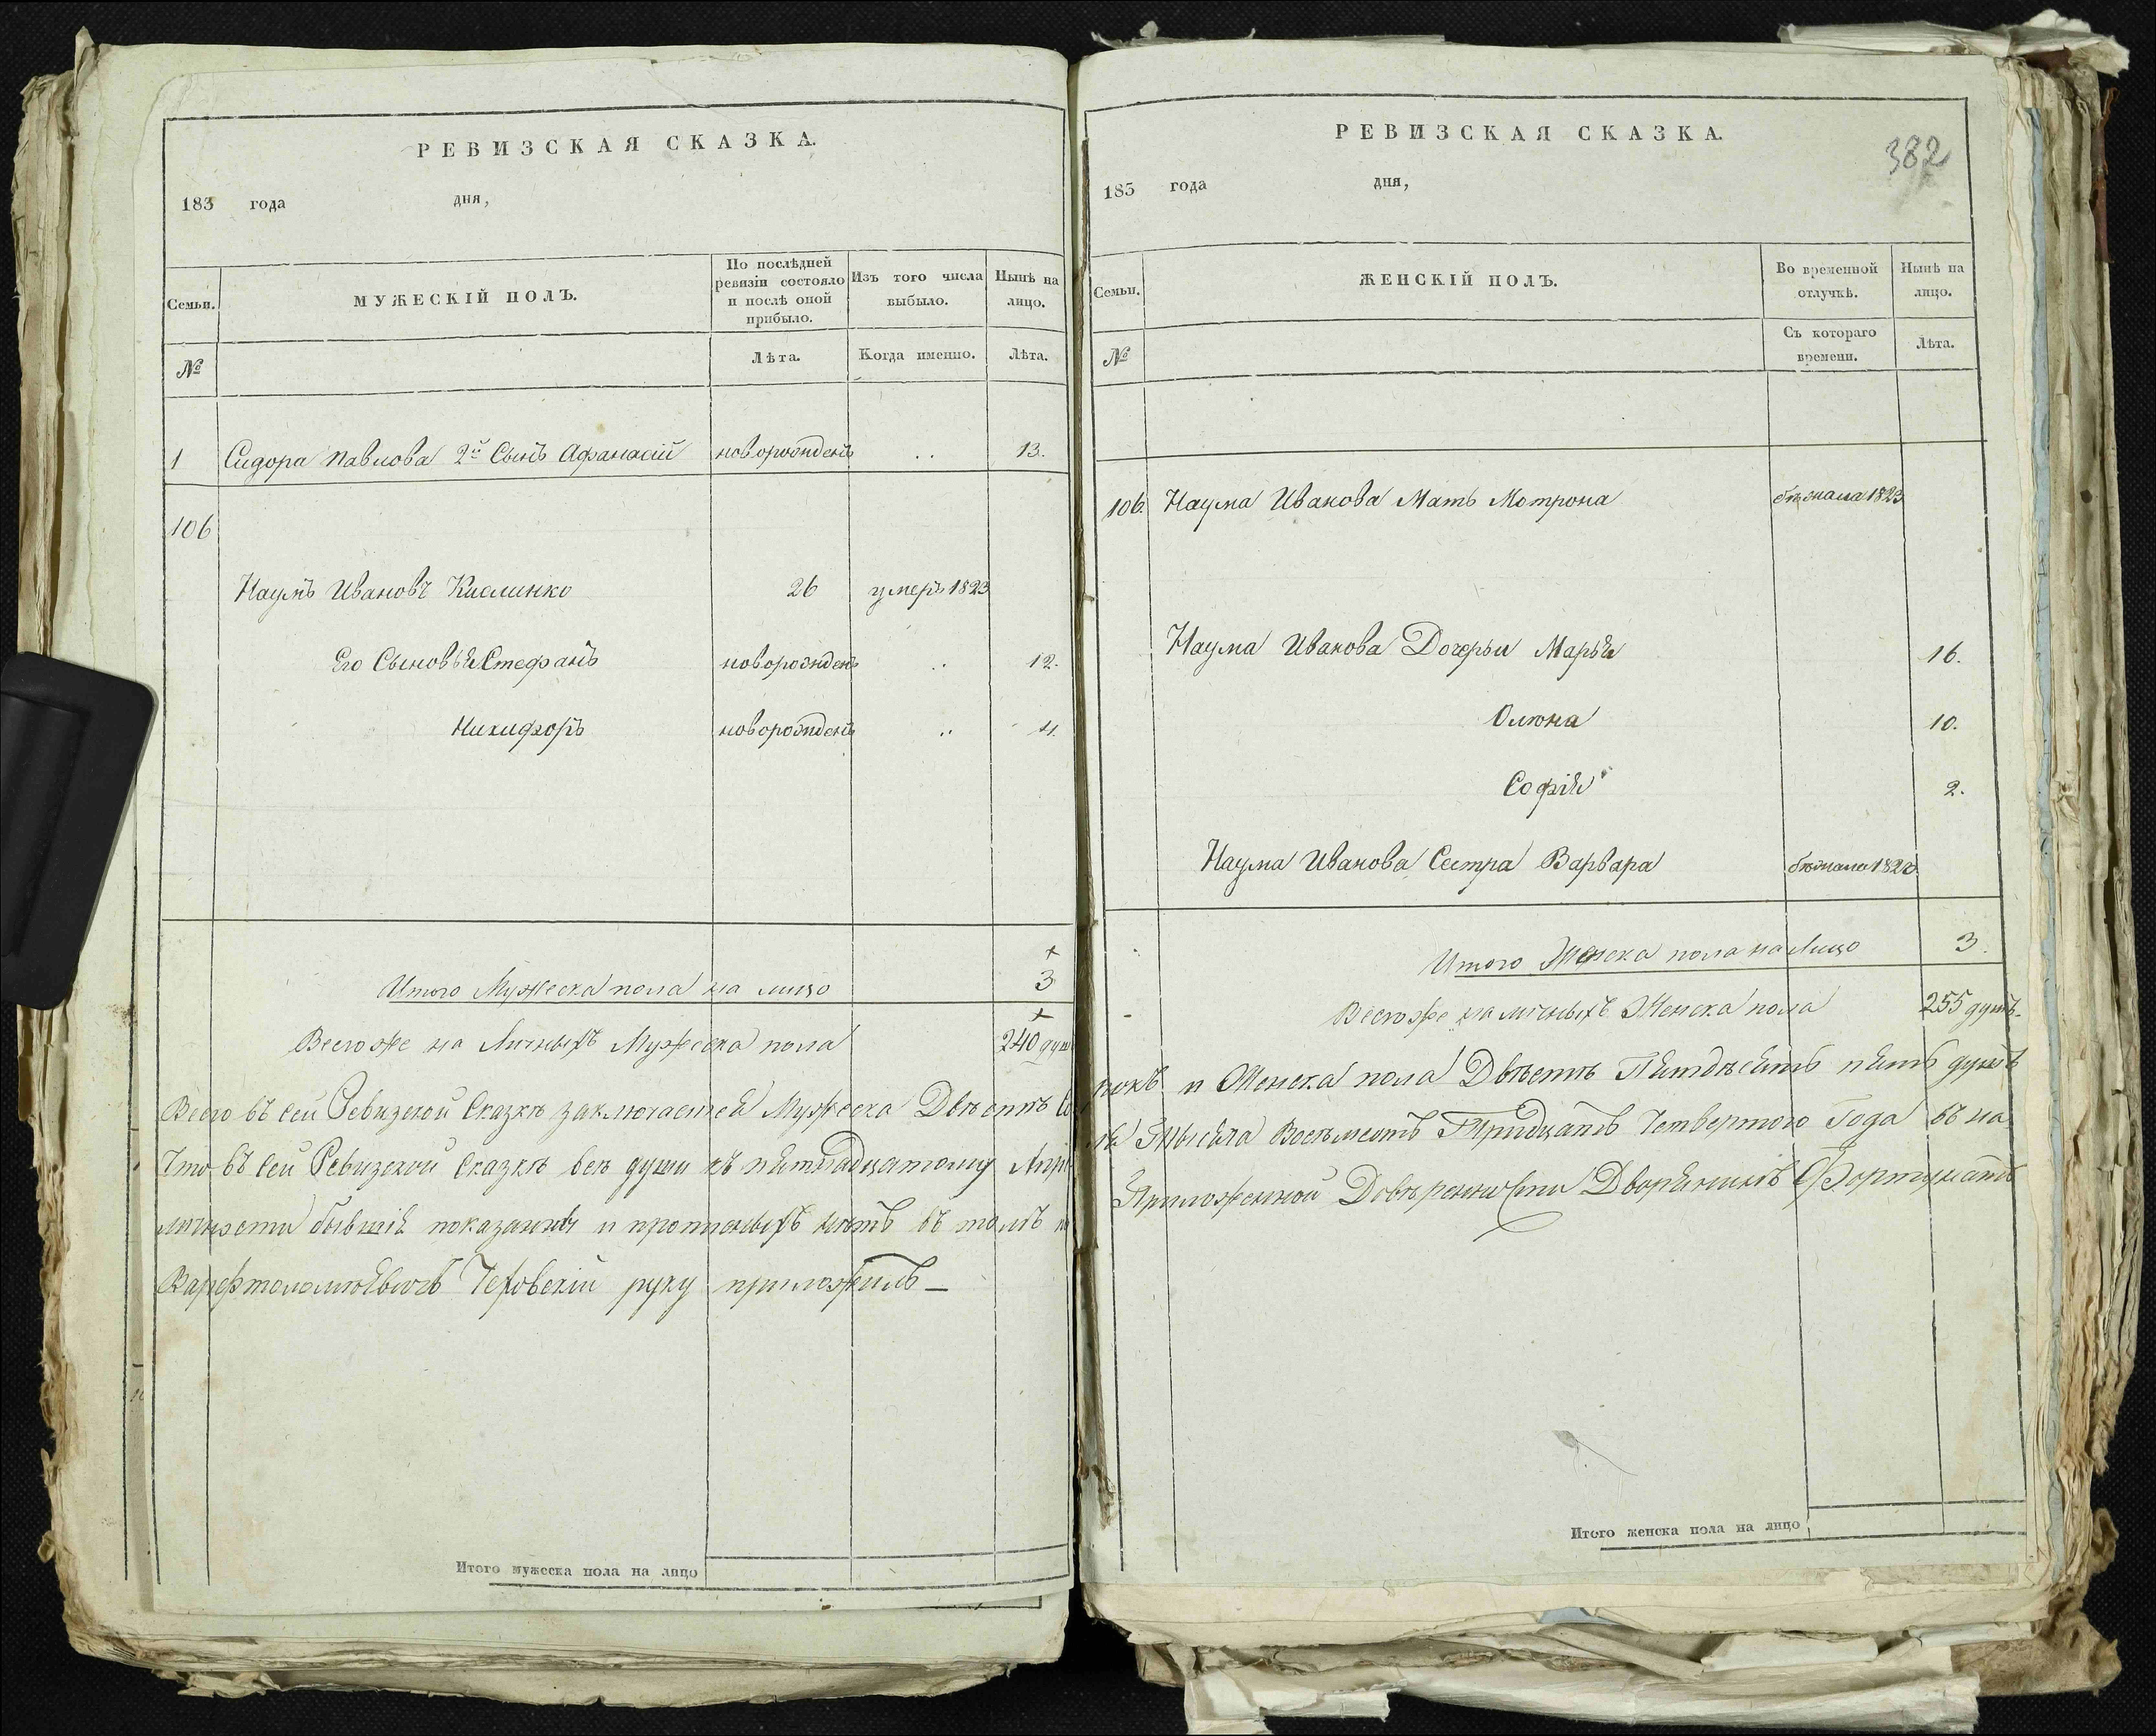 РЕВИЗСКАЯ СКАЗКА.
183 года дня,
Семьи. МУЖЕСКІЙ ПОЛЪ. По послѣдней ревизіи состояло и послѣ оной прибыло. Изъ того числа выбыло. Нынѣ на лицо.
№ Лѣта. Когда именно. Лѣта.
1 Сидора Павлова 2й Сынъ Афанасій новорожденъ .. 13.
106
Наумъ Ивановъ Кислинко 26 умеръ 1823
Его Сыновья Стефанъ новорожденъ .. 12.
Никифоръ новорожденъ .. 4.
Итого Мужеска пола на лицо 3
Всегоже на Личныхъ Мужеска пола 240 душ
Всего въ сей Ревизской Сказкѣ заключается Мужеска Двѣстѣ
Что въ сей Ревизской Сказкѣ всѣ души къ пятнадцатому
личности бывшія показанны и прописныхъ нѣтъ въ томъ
Варфтоломѣевичъ Чеховскій руку приложилъ —
Итого мужеска пола на лицо
РЕВИЗСКАЯ СКАЗКА.
382
183 года дня,
Семьи. ЖЕНСКІЙ ПОЛЪ. Во временной отлучкѣ. Нынѣ на лицо.
№ Съ котораго времени. Лѣта.
106. Наума Иванова Мать Мотрона бѣжала 1823
Наума Иванова Дочерьи Марья 16.
Олюна 10.
Софія 2.
Наума Иванова Сестра Варвара бѣжала
Итого Женска пола на Лицо 3.
Всегоже на личныхъ Женска пола 255 душъ.
рокъ и Женска пола Двѣстѣ Пятдѣсятъ пять душъ
Тысяча Восѣмсотъ Тридцать Четвертого Года въ на
Приложенной Довѣренности Дворянинъ Фортунатъ
Итого женска пола на лицо